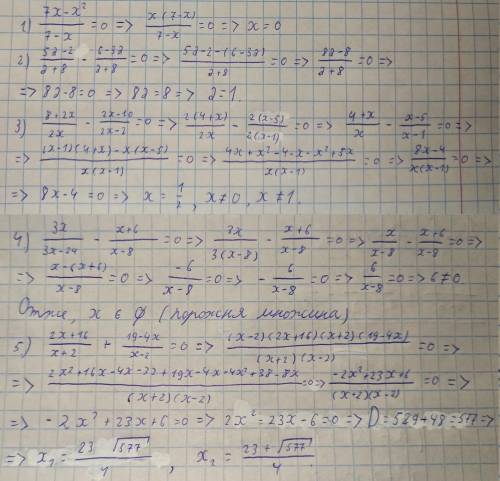 1) (7x-x²)/(7-x) = 0 => x(7-x)/(7-x) = 0 => x = 0
2) (5a-2)/(a+8) - (6-3a)/(a+8) = 0 => (5a-2-(6-3a))/(a+8) = 0 => (8a-8)/(a+8) = 0 =>
=> 8a-8=0 => 8a=8 => a=1.
3) (8+2x)/2x - (2x-10)/(2x-2) = 0 => 2(4+x)/2x - 2(x-5)/2(x-1) = 0 => (4+x)/x - (x-5)/(x-1) = 0 =>
=> ((x-1)(4+x)-x(x-5))/x(x-1) = 0 => (4x+x²-4-x-x²+5x)/x(x-1) = 0 => (8x-4)/x(x-1) = 0 =>
=> 8x-4 = 0 => x = 1/2, x≠0, x≠1.
4) 3x/(3x-24) - (x+6)/(x-8) = 0 => 3x/3(x-8) - (x+6)/(x-8) = 0 => x/(x-8) - (x+6)/(x-8) = 0 =>
=> (x-(x+6))/(x-8) = 0 => -6/(x-8) = 0 => - 6/(x-8) = 0 => 6/(x-8) = 0 => 6≠0.
Отже, x є ф (порожня множина)
5) (2x+16)/(x+2) + (19-4x)/(x-2) = 0 => (x-2)(2x+16)(x+2)(19-4x)/(x+2)(x-2) = 0 =>
=> (2x²+16x-4x-32+19x-4x-4x²+38-8x)/(x+2)(x-2) = 0 => (-2x²+23x+6)/(x+2)(x-2) = 0 =>
=> -2x²+23x+6=0 => 2x²=23x-6=0 => D=529+48=577 =>
=> x₁ = (23-√577)/4, x₂ = (23+√577)/4.